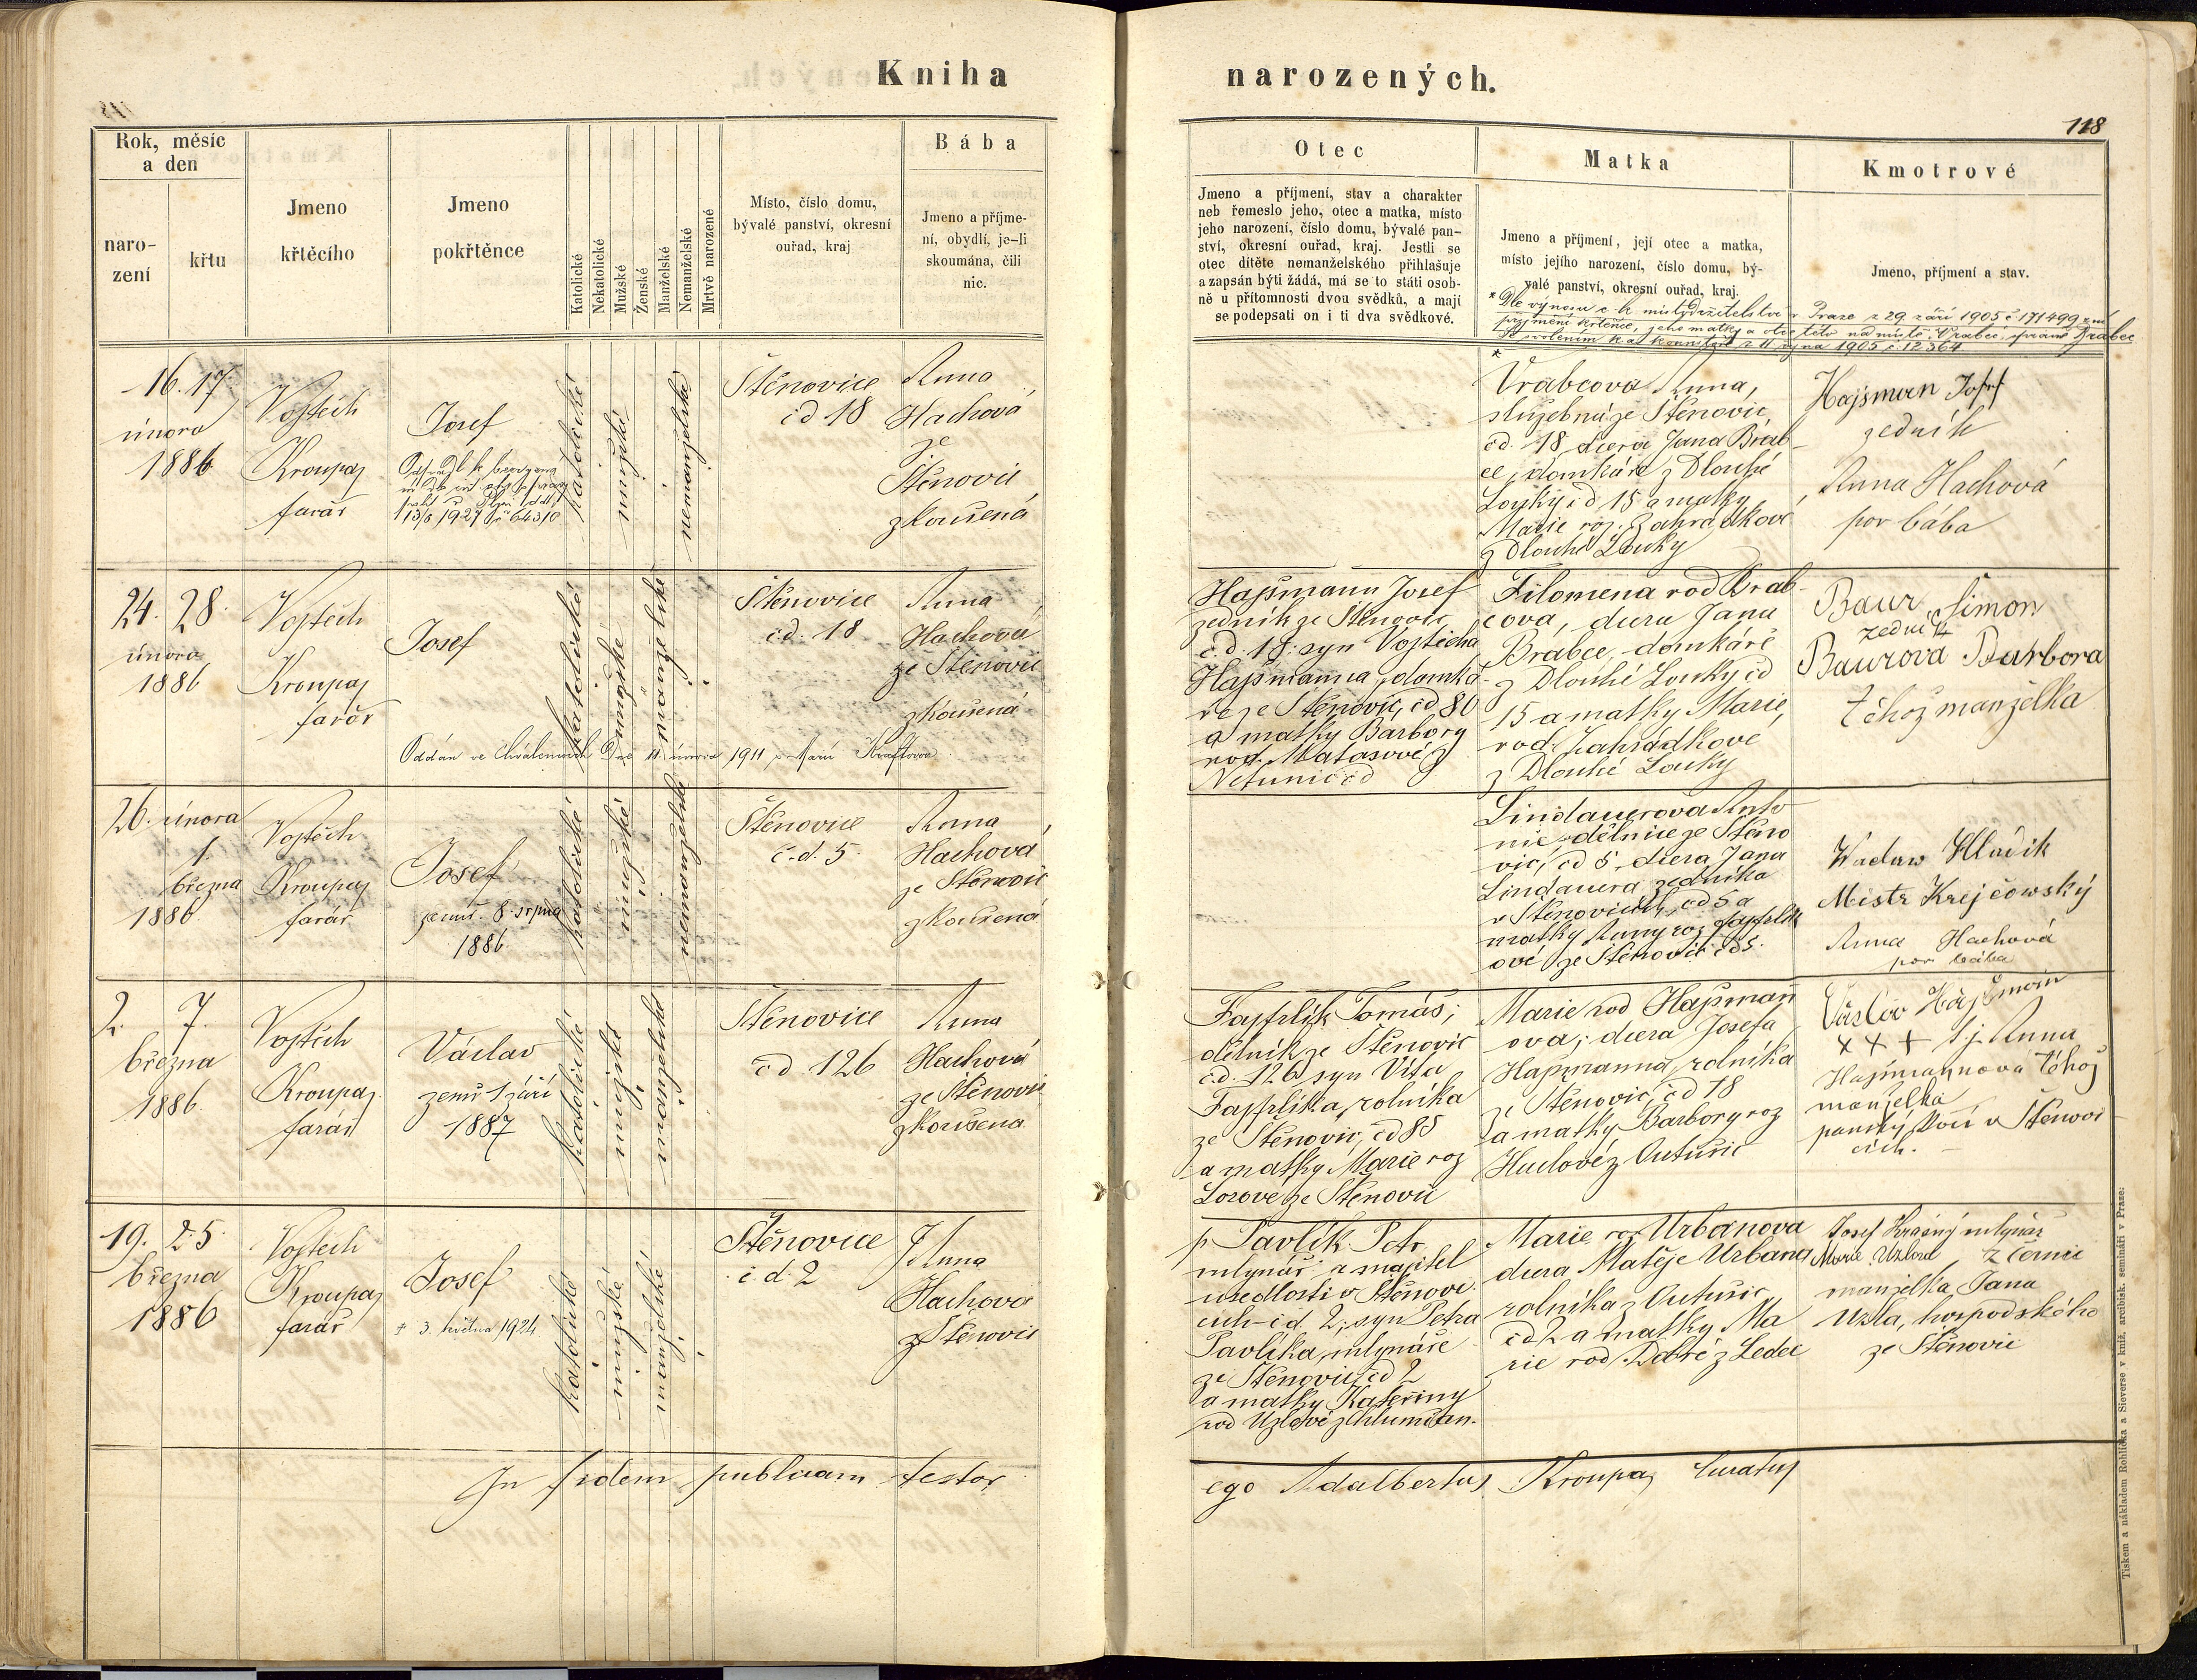 Kniha narozených.
118
Rok, měsíc
a den
naro-
zení
křtu
Jmeno
křtěcího
Jmeno
pokřtěnce
Katolické
Nekatolické
Mužské
Ženské
Manželské
Nemanželské
Mrtvě narozené
Místo, číslo domu,
bývalé panství, okresní
ouřad, kraj
Bába
Jmeno a příjme-
ní, obydlí, je-li
skoumána, čili
nic.
Otec
Jmeno a příjmení, stav a charakter
neb řemeslo jeho, otec a matka, místo
jeho narození, číslo domu, bývalé pan-
ství, okresní ouřad, kraj. Jestli se
otec dítěte nemanželského přihlašuje
a zapsán býti žádá, má se to státi osob-
ně u přítomnosti dvou svědků, a mají
se podepsati on i ti dva svědkové.
Matka
Jmeno a příjmení, její otec a matka,
místo jejího narození, číslo domu, bý-
valé panství, okresní ouřad, kraj.
Kmotrové
Jmeno, příjmení a stav.
* Dle výnosu c. k. místodržitelství v Praze z 29. září 1905 č. 171499 zní
příjmení křtěnce, jeho matky a otce této na místě Vrabec, správně Brabec
11 října 1905 č. 12364
16. 17.
února
1886
Vojtěch
Kroupa,
farář
Josef
13/5 1927 č 64310
katolické
mužské
nemanželské
Štěnovice
čd 18
Anna
Hachová
ze
Štěnovic
zkoušená
*
Vrabcova Anna,
služebná ze Štěnovic,
čd. 18, dcera Jana Brab-
ce, domkáře z Dlouhé
Louky čd 15 a matky
Marie roz. Zahrádkové
z Dlouhé Louky
Hajšman Josef
zedník
Anna Hachová
por bába
24. 28.
února
1886
Vojtěch
Kroupa,
farář
Josef
Oddán ve Chválenicích dne 11. února 1911 s Marií Kraftovou
katolické
mužské
manželské
Štěnovice
č.d. 18
Anna
Hachová
ze Štěnovic
zkoušená
Hajšmann Josef
zedník ze Štěnovic,
č.d. 18. syn Vojtěcha
Hajšmanna, domká-
ře ze Štěnovic, čd 80
a matky Barbory
rod. Matasové z
Netunic čd
Filomena rod Brab-
cova, dcera Jana
Brabce, domkáře
z Dlouhé Louky čd
15 a matky Marie,
rod. Zahrádkové
z Dlouhé Louky
Baur Šimon
zedník
Baurova Barbora
téhož manželka
26. února
1.
března
1886.
Vojtěch
Kroupa,
farář
Josef
zemř. 8. srpna
1886
katolické
mužské
nemanželské
Štěnovice
č.d. 5.
Anna
Hachová
ze Štěnovic
zkoušená
Lindauerova Anto
nie, dělnice ze Štěno
vic, čd 5, dcera Jana
Lindauera, zedníka
v Štěnovicích, čd 5 a
matky Anny roz Fajfrlík
ové ze Štěnovic čd 5.
Waclaw Hladik
Mistr Krejčowský
Anna Hachová
por bába
2. 7.
března
1886.
Vojtěch
Kroupa,
farář
Václav
zemř 1 září
1887
katolické
mužské
manželské
Štěnovice
čd 126
Anna
Hachová
ze Štěnovic
zkoušena
Fajfrlík Tomáš,
dělník ze Štěnovic
čd. 126 syn Víta
Fajfrlíka, rolníka
ze Štěnovic, čd 85
a matky Marie roz
Lorove ze Štěnovic
Marie rod Hajšman
ova; dcera Josefa
Hajšmanna, rolníka
ze Štěnovic, čd 18
a matky Barbory roz
Huclové z Outušic
Václav Hajšman
+ + + Anna
Hajšmannova téhož
manželka
panský kočí v Štěnovi
cích.
19. 25.
března
1886
Vojtěch
Kroupa,
farář
Josef
+ 3. května 1924
katolické
mužské
manželské
Štěnovice
č d. 2
Anna
Hachova
ze Štěnovic
p Pavlík Petr
mlynář a majitel
usedlosti v Štěnovi-
cích čd 2, syn Petra
Pavlíka, mlynáře
ze Štěnovic, čd 2
a matky Kateřiny
rod Uzlové z Chlumčan.
Marie roz Urbanova
dcera Matěje Urbana
rolníka z Outušic
čd 2 a matky Ma
rie rod. Dobré z Ledec
Josef Krásný mlynář
z Černic
Marie Uzlová
manželka Jana
Uzla, hospodského
ze Štěnovic
In fidem publicam testor
ego Adalbertus Kroupa, Curatus
Tiskem a nákladem Rohlíčka a Sieverse v kníž. arcibisk. semináři v Praze.